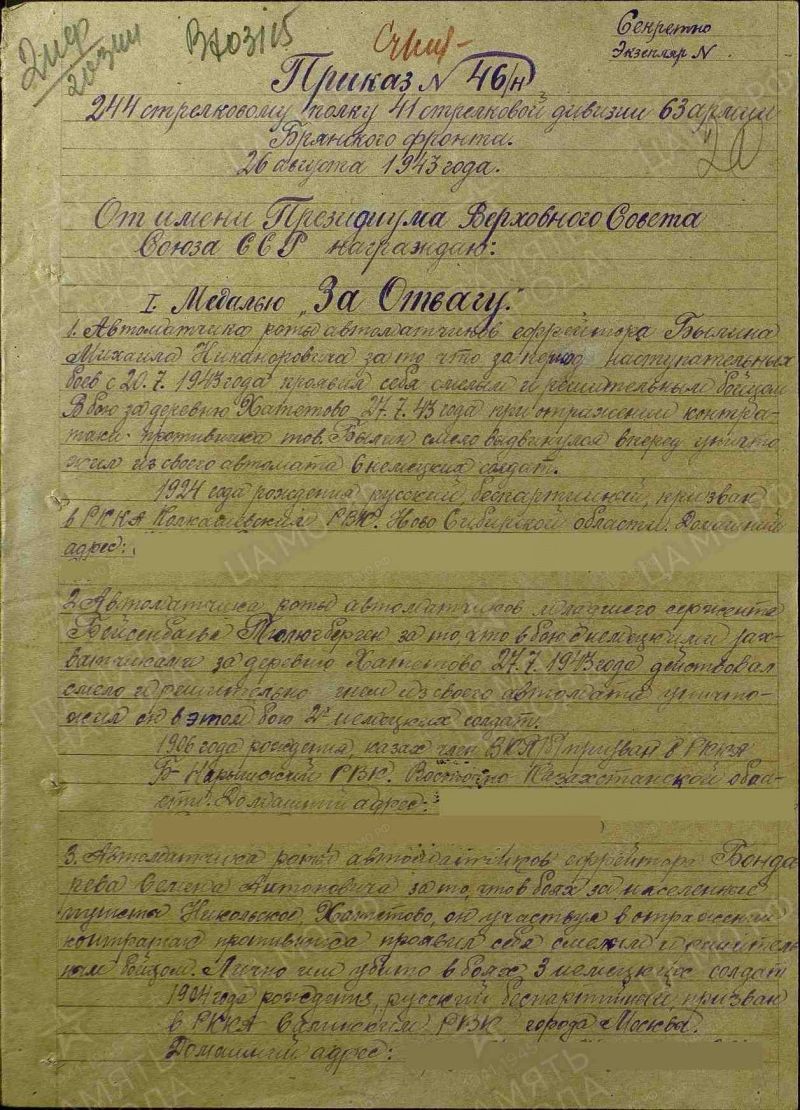 Секретно
Экземпляр №
В703115
20
Приказ № 46/н
244 стрелковому полку 41 стрелковой дивизии 63 армии
Брянского фронта.
26 августа 1943 года.
От имени Президиума Верховного Совета
Союза ССР награждаю:
I. Медалью „За Отвагу".
1. Автоматчика роты автоматчиков ефрейтора Былина
Михаила Никаноровича за то что за период наступательных
боев с 20.7.1943 года проявил себя смелым и решительным бойцом
В бою за деревню Хатетово 27.7.43 года при отражении контра-
таки противника тов. Былин смело выдвинулся вперед уничто
жил из своего автомата 6 немецких солдат.
1924 года рождения русский беспартийный, призван
в РККА Колпашевским РВК. Ново Сибирской области. Домашний
адрес:
2. Автоматчика роты автоматчиков младшего сержанта
за то, что в бою с немецкими зах-
ватчиками за деревню Хатетово 27.7.1943 года действовал
смело и решительно огнем из своего автомата уничто-
жил он в этом бою 2х немецких солдат.
1906 года рождения казах член ВКП(б) призван в РККА
Б-Нарымский РВК. Восточно Казахстанской обла-
сти. Домашний адрес:
3. Автоматчика роты автоматчиков ефрейтора Бонда
рева Антоновича за то, что в боях за населенные
пункты Никольское, Хатетово, он участвуя в отражении
контратак противника проявил себя смелым и решитель
ным бойцом. Лично им убито в боях 3 немецких солдат
1904 года рождения, русский беспартийный, призван
в РККА РВК города Москва.
Домашний адрес: